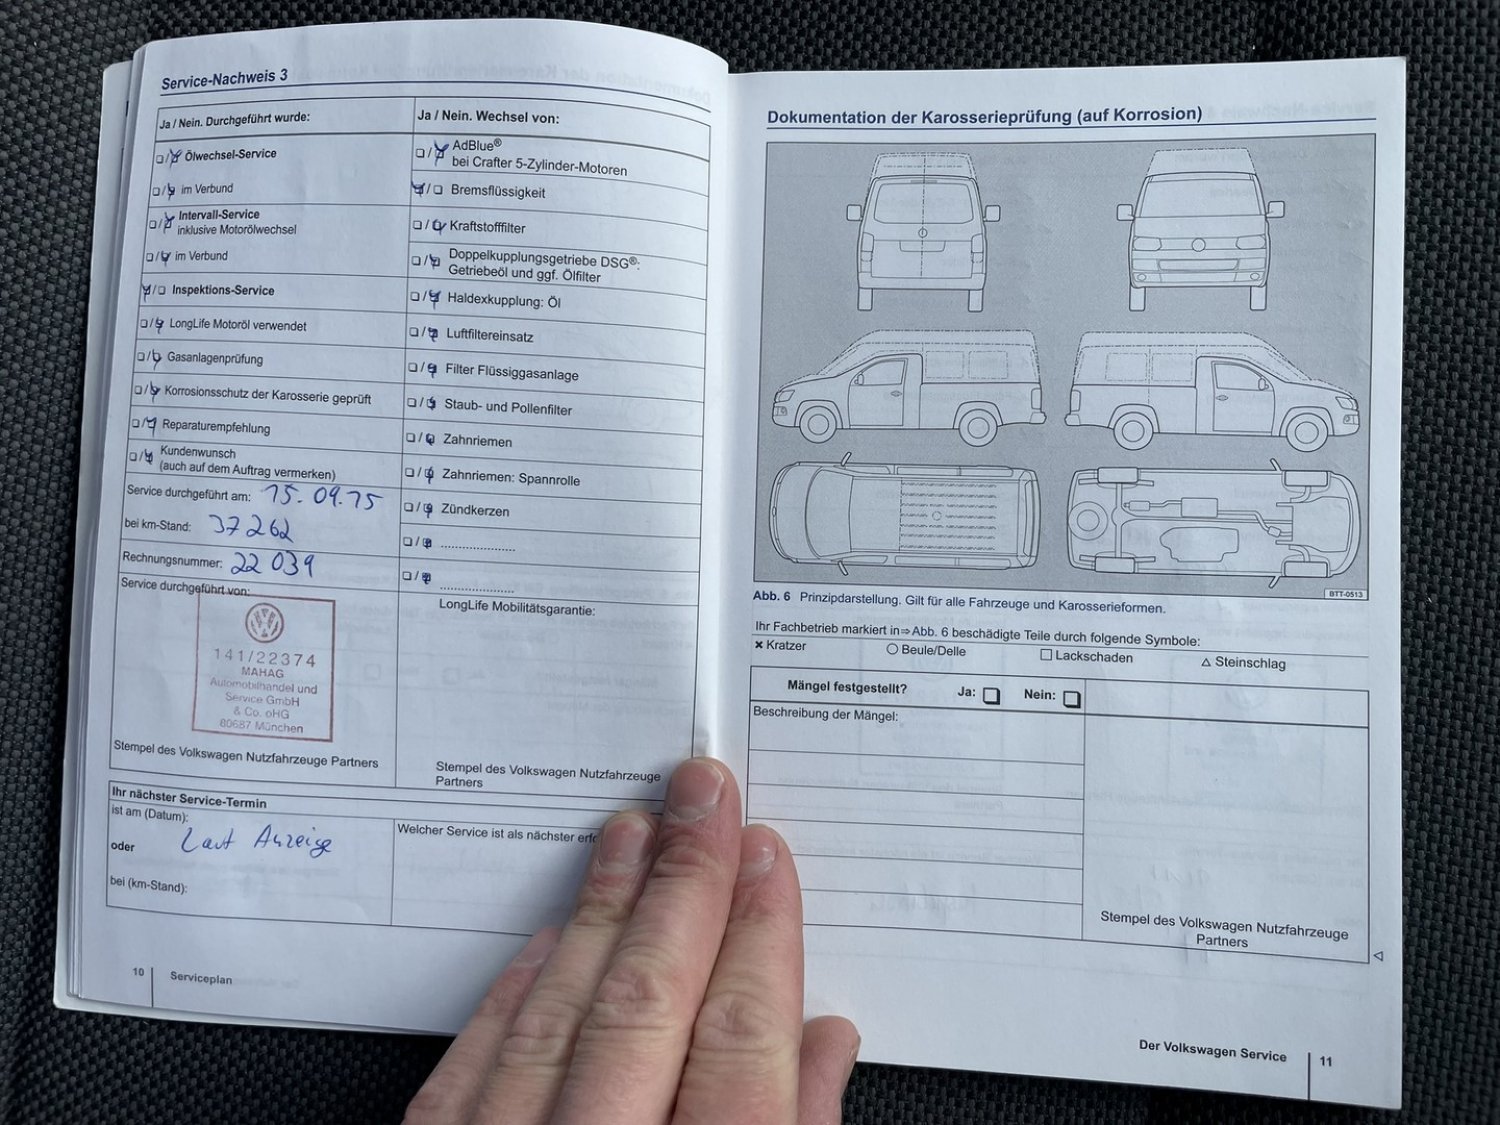 Service-Nachweis 3
Ja / Nein. Durchgeführt wurde:
Ölwechsel-Service
im Verbund
Intervall-Service
inklusive Motorölwechsel
im Verbund
Inspektions-Service
LongLife Motoröl verwendet
Gasanlagenprüfung
Korrosionsschutz der Karosserie geprüft
Reparaturempfehlung
Kundenwunsch
(auch auf dem Auftrag vermerken)
Service durchgeführt am: 15.09.15
bei km-Stand: 37262
Rechnungsnummer: 22 039
Service durchgeführt von:
141/22374
MAHAG
Automobilhandel und
Service GmbH
& Co. oHG
80687 München
Stempel des Volkswagen Nutzfahrzeuge Partners
Ja / Nein. Wechsel von:
AdBlue®
bei Crafter 5-Zylinder-Motoren
Bremsflüssigkeit
Kraftstofffilter
Doppelkupplungsgetriebe DSG®:
Getriebeöl und ggf. Ölfilter
Haldexkupplung: Öl
Luftfiltereinsatz
Filter Flüssiggasanlage
Staub- und Pollenfilter
Zahnriemen
Zahnriemen: Spannrolle
Zündkerzen
LongLife Mobilitätsgarantie:
Stempel des Volkswagen Nutzfahrzeuge
Partners
Ihr nächster Service-Termin
ist am (Datum):
Laut Anzeige
oder
bei (km-Stand):
Welcher Service ist als nächster
10
Serviceplan
Dokumentation der Karosserieprüfung (auf Korrosion)
BTT-0513
Abb. 6 Prinzipdarstellung. Gilt für alle Fahrzeuge und Karosserieformen.
Ihr Fachbetrieb markiert in⇒Abb. 6 beschädigte Teile durch folgende Symbole:
✖ Kratzer ○ Beule/Delle □ Lackschaden △ Steinschlag
Mängel festgestellt? Ja: Nein:
Beschreibung der Mängel:
Stempel des Volkswagen Nutzfahrzeuge
Partners
Der Volkswagen Service
11